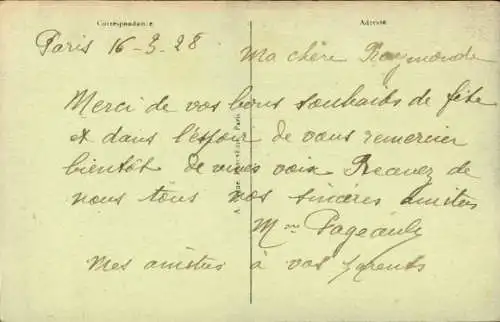 Correspondance Adresse
Paris 16-3-28 Ma chère Raymonde
Merci de vos bons souhaits de fête
et dans l'espoir de vous remercier
bientôt de vives voix Recevez de
nous tous nos sincères amitiés
Mme
Mes amitiés à vos parents